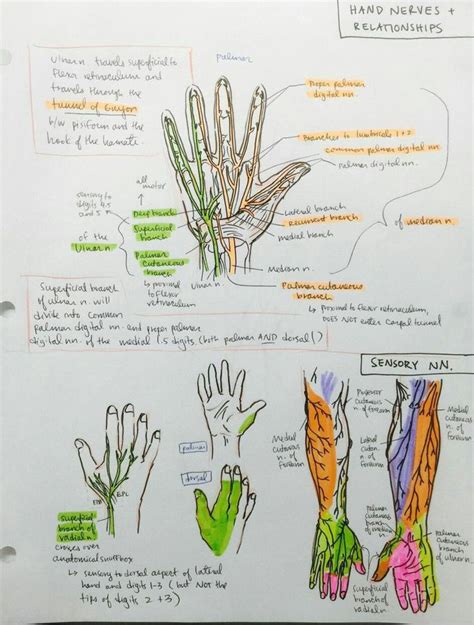 HAND NERVES +
RELATIONSHIPS
Ulnar n travels superficial to
flexor retinaculum and
travels through the
tunnel of Guyon
b/w pisiform and the
hook of the hamate.
palmar
Proper palmar
digital nn.
Branches to lumbricals 1+2
common palmar digital nn.
palmar digital nn.
sensory to
digits 4.5
and 5
all
motor
Deep branch
Superficial
branch
Palmar
cutaneous
branch
of the
Ulnar n
↳ proximal
to flexor
retinaculum
Ulnar n.
Lateral branch
Recurrent branch
medial branch
of median n.
Median n.
Palmar cutaneous
branch
↳ proximal to flexor retinaculum,
DOES NOT enter carpal tunnel
Superficial branch
of ulnar n. will
divide into common
palmar digital nn. and proper palmar
digital nn. of the medial 1.5 digits (both palmar AND dorsal!)
SENSORY NN.
palmar
dorsal
EPB
EPL
superficial
branch of
radial n
crosses over
anatomical snuffbox
↳ sensory to dorsal aspect of lateral
hand and digits 1-3 (but NOT the
tips of digits 2+3)
Posterior
cutaneous
n. of forearm
Medial
cutaneous
n. of
forearm
Lateral
cutan.
n. of
forearm
Medial
cutaneous
n. of
forearm
Palmar
cutaneous
branch of
median n.
Palmar
cutaneous
branch
of ulnar n.
Superficial
branch of
radial n